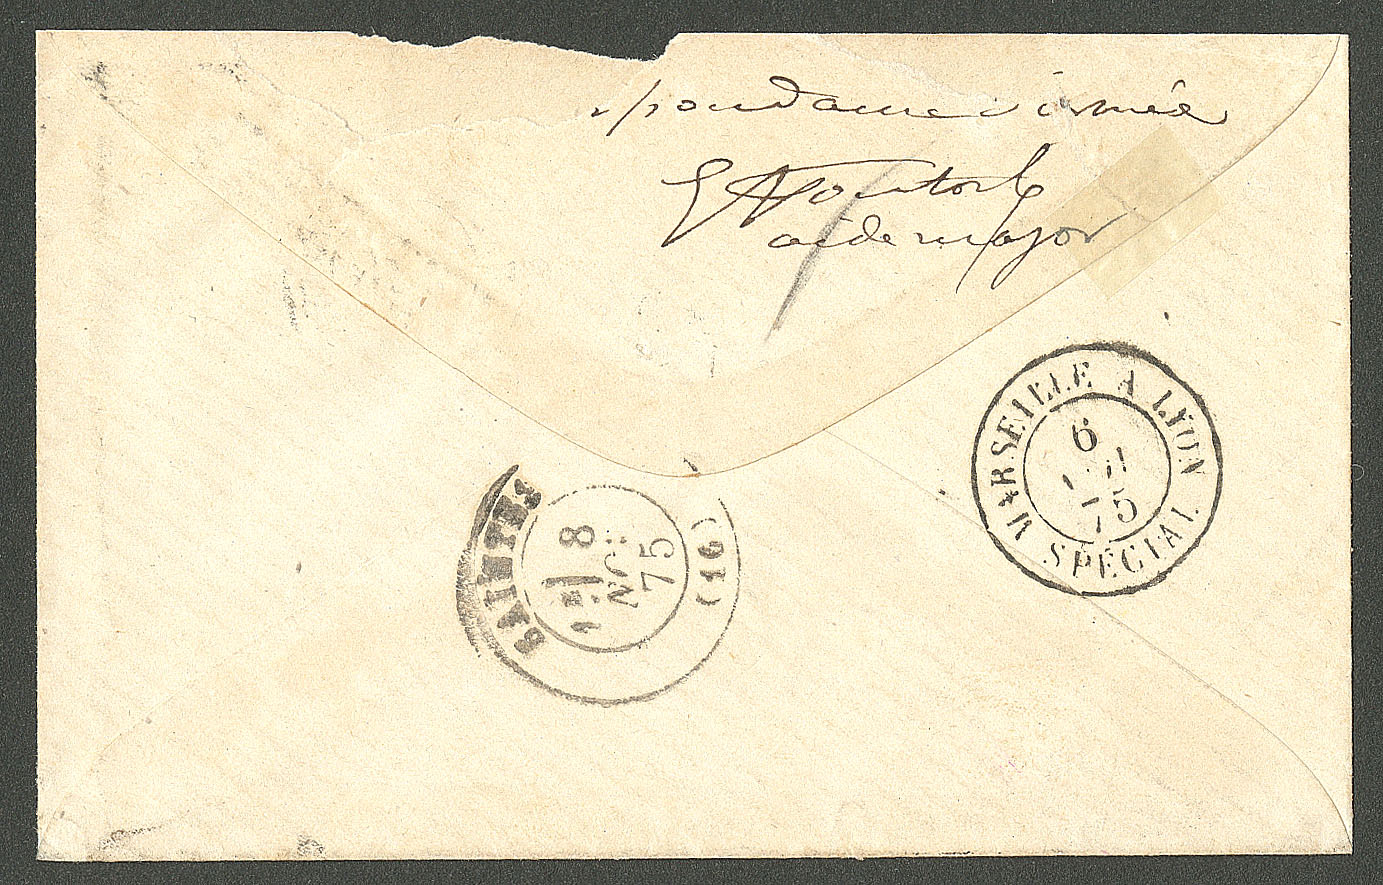 spondance d'armée
aide major
MARSEILLE A LYON
6
75
SPÉCIAL
SAINTES
8
NOV
75
(16)